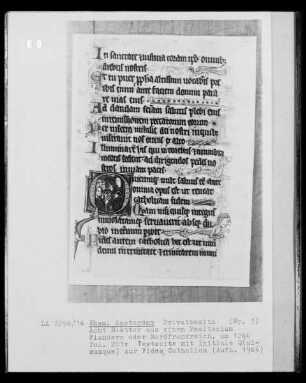 E 9
In sanctitate et iusticia coram ipso omnibus
diebus nostris
Et tu puer propheta altissimi vocaberis
ibis enim ante faciem domini parare
vias eius
Ad dandam scientiam salutis plebi eius
in remissionem peccatorum eorum
Per viscera misericordie dei nostri in quibus
visitavit nos oriens ex alto
Illuminare his qui in tenebris
mortis sedent ad dirigendos pedes nostros
in viam pacis
Quicumque vult salvus esse ante
omnia opus est ut teneat
catholicam fidem
Quam nisi quisque integram
inviolatamque servaverit absque dubio
in eternum peribit
Fides autem catholica hec est ut unum
deum in trinitate et trinitatem in un
LA 2296/16 Ehem. Amsterdam Privatbesitz (Nr. ?)
Acht Blätter aus einem Psalterium
Flandern oder Nordfrankreich, um 1260
Fol. Textseite mit Initiale Q(ui-
cumque) zur Fides Catholica (Aufn. 1966)